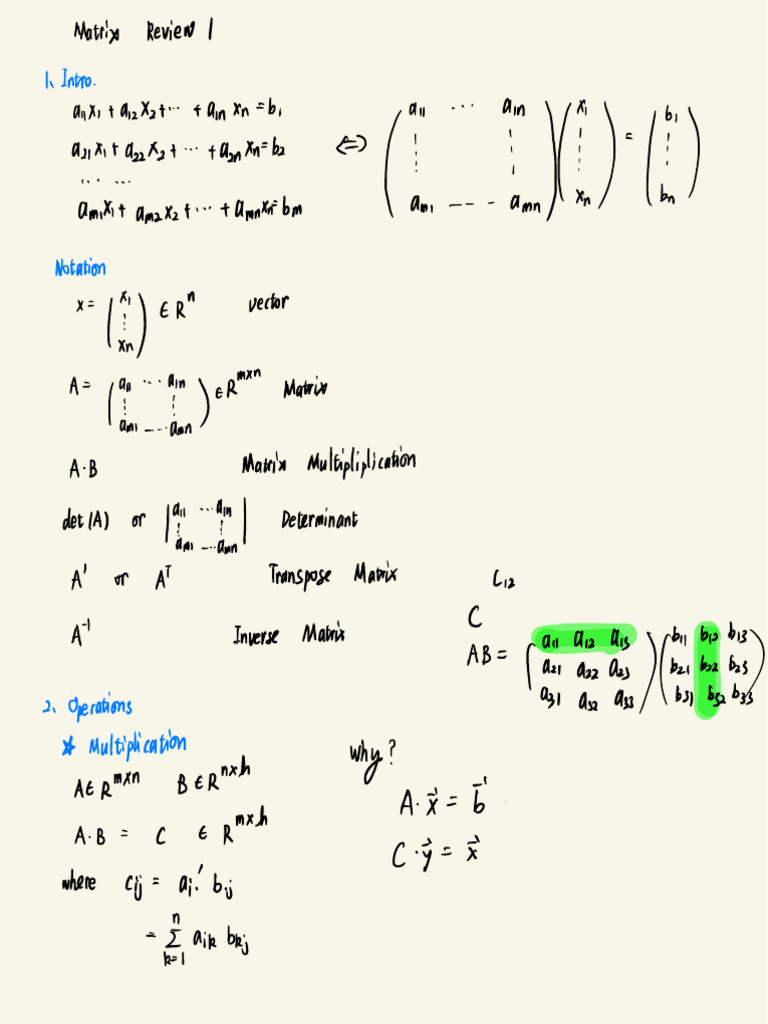 Matrix Review 1
1、Intro.
a11x1+a12x2+⋯ +a1n xn=b1
a21x1+a22x2+⋯ +a2nxn=b2
⋯ ⋯
am1x1+am2x2+⋯ +amnxn=bm
⇔ (a11 ⋯ a1n ⋮ ⋮ am1 --- amn)(x1 ⋮ xn) = (b1 ⋮ bn)
Notation
x= (x1 ⋮ xn) ∈ R^n vector
A= (a11 ⋯ a1n ⋮ ⋮ am1 ---amn) ∈ R^mxn Matrix
A·B Matrix Multipliplication
det(A) or |a11 ⋯a1n ⋮ ⋮ am1 ---amn| Determinant
A' or A^T Transpose Matrix
A^-1 Inverse Matrix
C12
C
AB= (a11 a12 a13
a21 a22 a23
a31 a32 a33)
(b11 b12 b13
b21 b22 b23
b31 b32 b33)
2、Operations
* Multiplication
A∈R^mxn B∈R^nxh
A·B = C ∈ R^mxh
where cij = ai·' b·j
= Σ_{k=1}^{n} aik bkj
why?
A·x⃗ = b⃗
C·y⃗ = x⃗